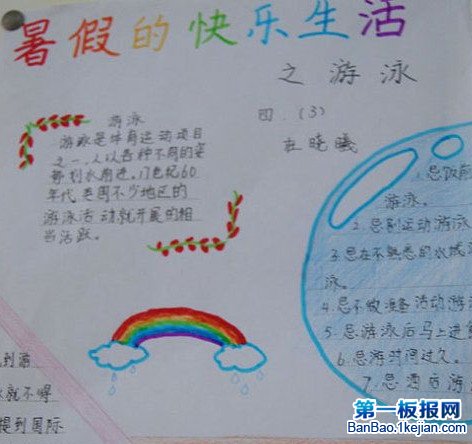 暑假的快乐生活
之游泳
四.(3)
晓曦
游泳
游泳是体育运动项目
之一.人以各种不同的姿
势划水前进。17世纪60
年代英国不少地区的
游泳活动就开展的相
当活跃。
1.忌饭前
游泳。
2.忌剧运动游泳
3.忌在不熟悉的水域
泳。
4.忌不做准备活动游
5.忌游泳后马上进
6.忌游时间过久。
7.忌酒后游
到游
就不得
提到国际
第一板报网
BanBao.1kejian.com